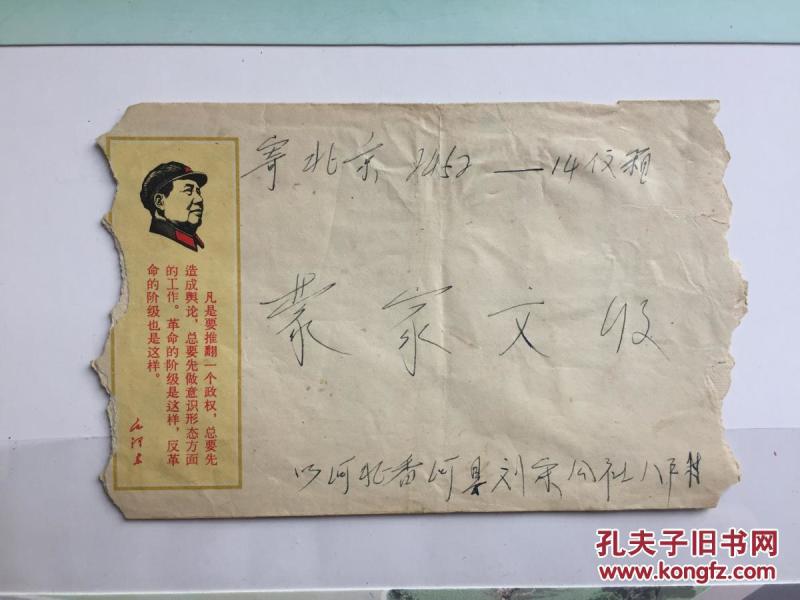 寄北京2452—14信箱
蒙家文收
河北香河县刘宋公社八户村
凡是要推翻一个政权，总要先
造成舆论，总要先做意识形态方面
的工作。革命的阶级是这样，反革
命的阶级也是这样。
毛泽东
孔夫子旧书网
www.kongfz.com